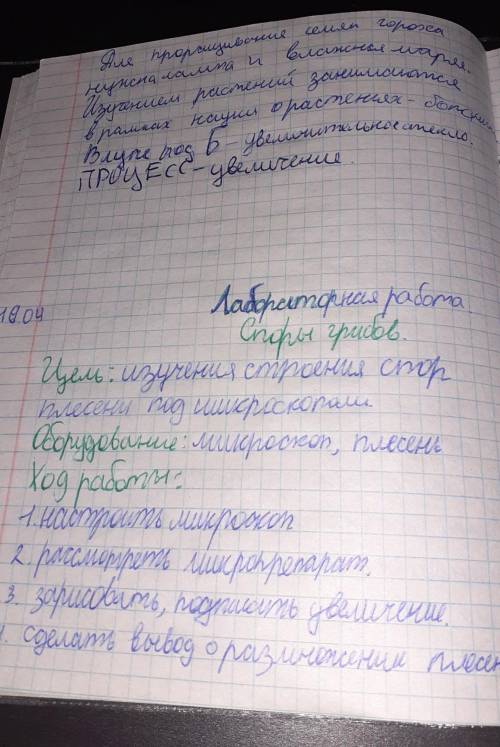 Для проращивание семян гороха
нужна лампа и влажная марля.
Изучением растений занимаются
в рамках науки о растениях - ботаника
В лупе под Б - увеличительное стекло.
ПРОЦЕСС - увеличение.
19.04
Лабораторная работа.
Споры грибов.
Цель: изучения строения спор
плесени под микроскопом.
Оборудование: микроскоп, плесень
Ход работы:
1. настроить микроскоп
2. рассмотреть микропрепарат.
3. зарисовать, подписать увеличение.
4. сделать вывод о размножении плесен